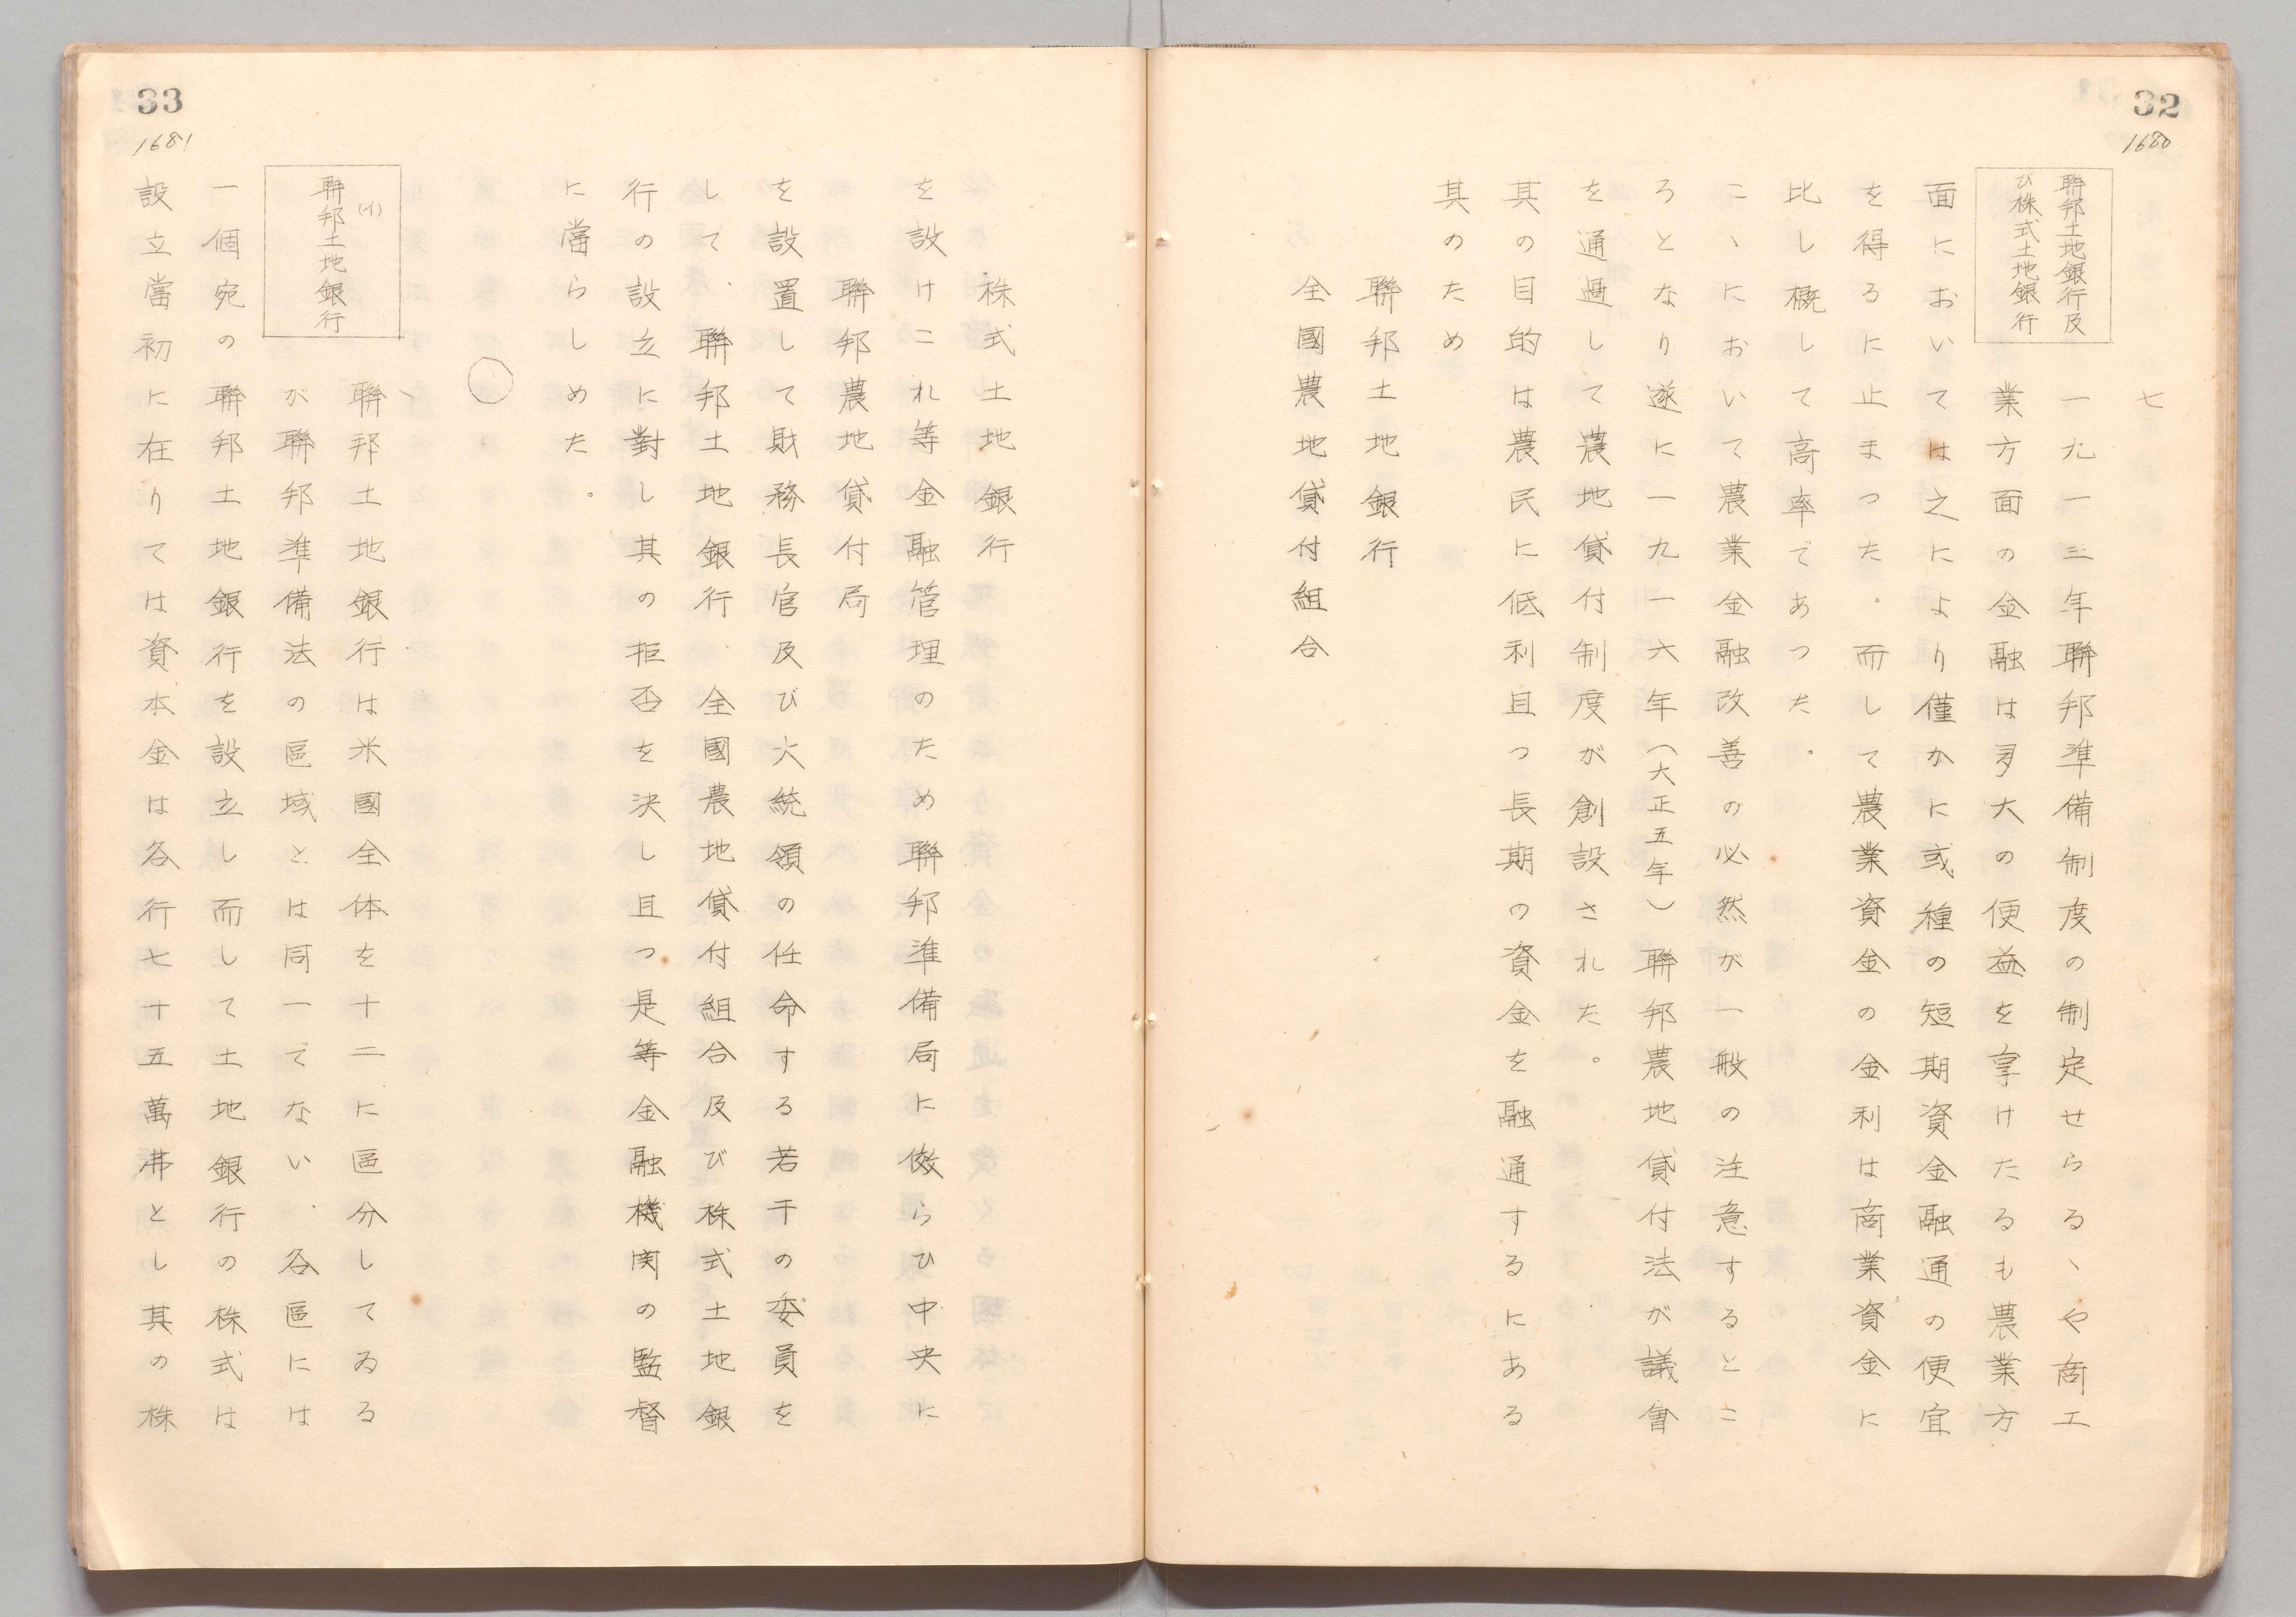 32
1680
七
聯邦土地銀行及
び株式土地銀行
一九一三年聯邦準備制度の制定せらるゝや商工
業方面の金融は多大の便益を享けたるも農業方
面においては之により僅かに或種の短期資金融通の便宜
を得るに止まつた。而して農業資金の金利は商業資金に
比し概して高率であつた。
こゝにおいて農業金融改善の必然が一般の注意するとこ
ろとなり遂に一九一六年(大正五年)聯邦農地貸付法が議會
を通過して農地貸付制度が創設された。
其の目的は農民に低利且つ長期の資金を融通するにある
其のため
聯邦土地銀行
全國農地貸付組合
33
1681
株式土地銀行
を設けこれ等金融管理のため聯邦準備局に倣らひ中央に
聯邦農地貸付局
を設置して財務長官及び大統領の任命する若干の委員を
して、聯邦土地銀行、全國農地貸付組合及び株式土地銀
行の設立に對し其の拒否を決し且つ是等金融機関の監督
に當らしめた。
○
(イ)
聯邦土地銀行
聯邦土地銀行は米國全体を十二に區分してゐる
が聯邦準備法の區域とは同一でない、各區には
一個宛の聯邦土地銀行を設立し而して土地銀行の株式は
設立當初に在りては資本金は各行七十五萬弗とし其の株